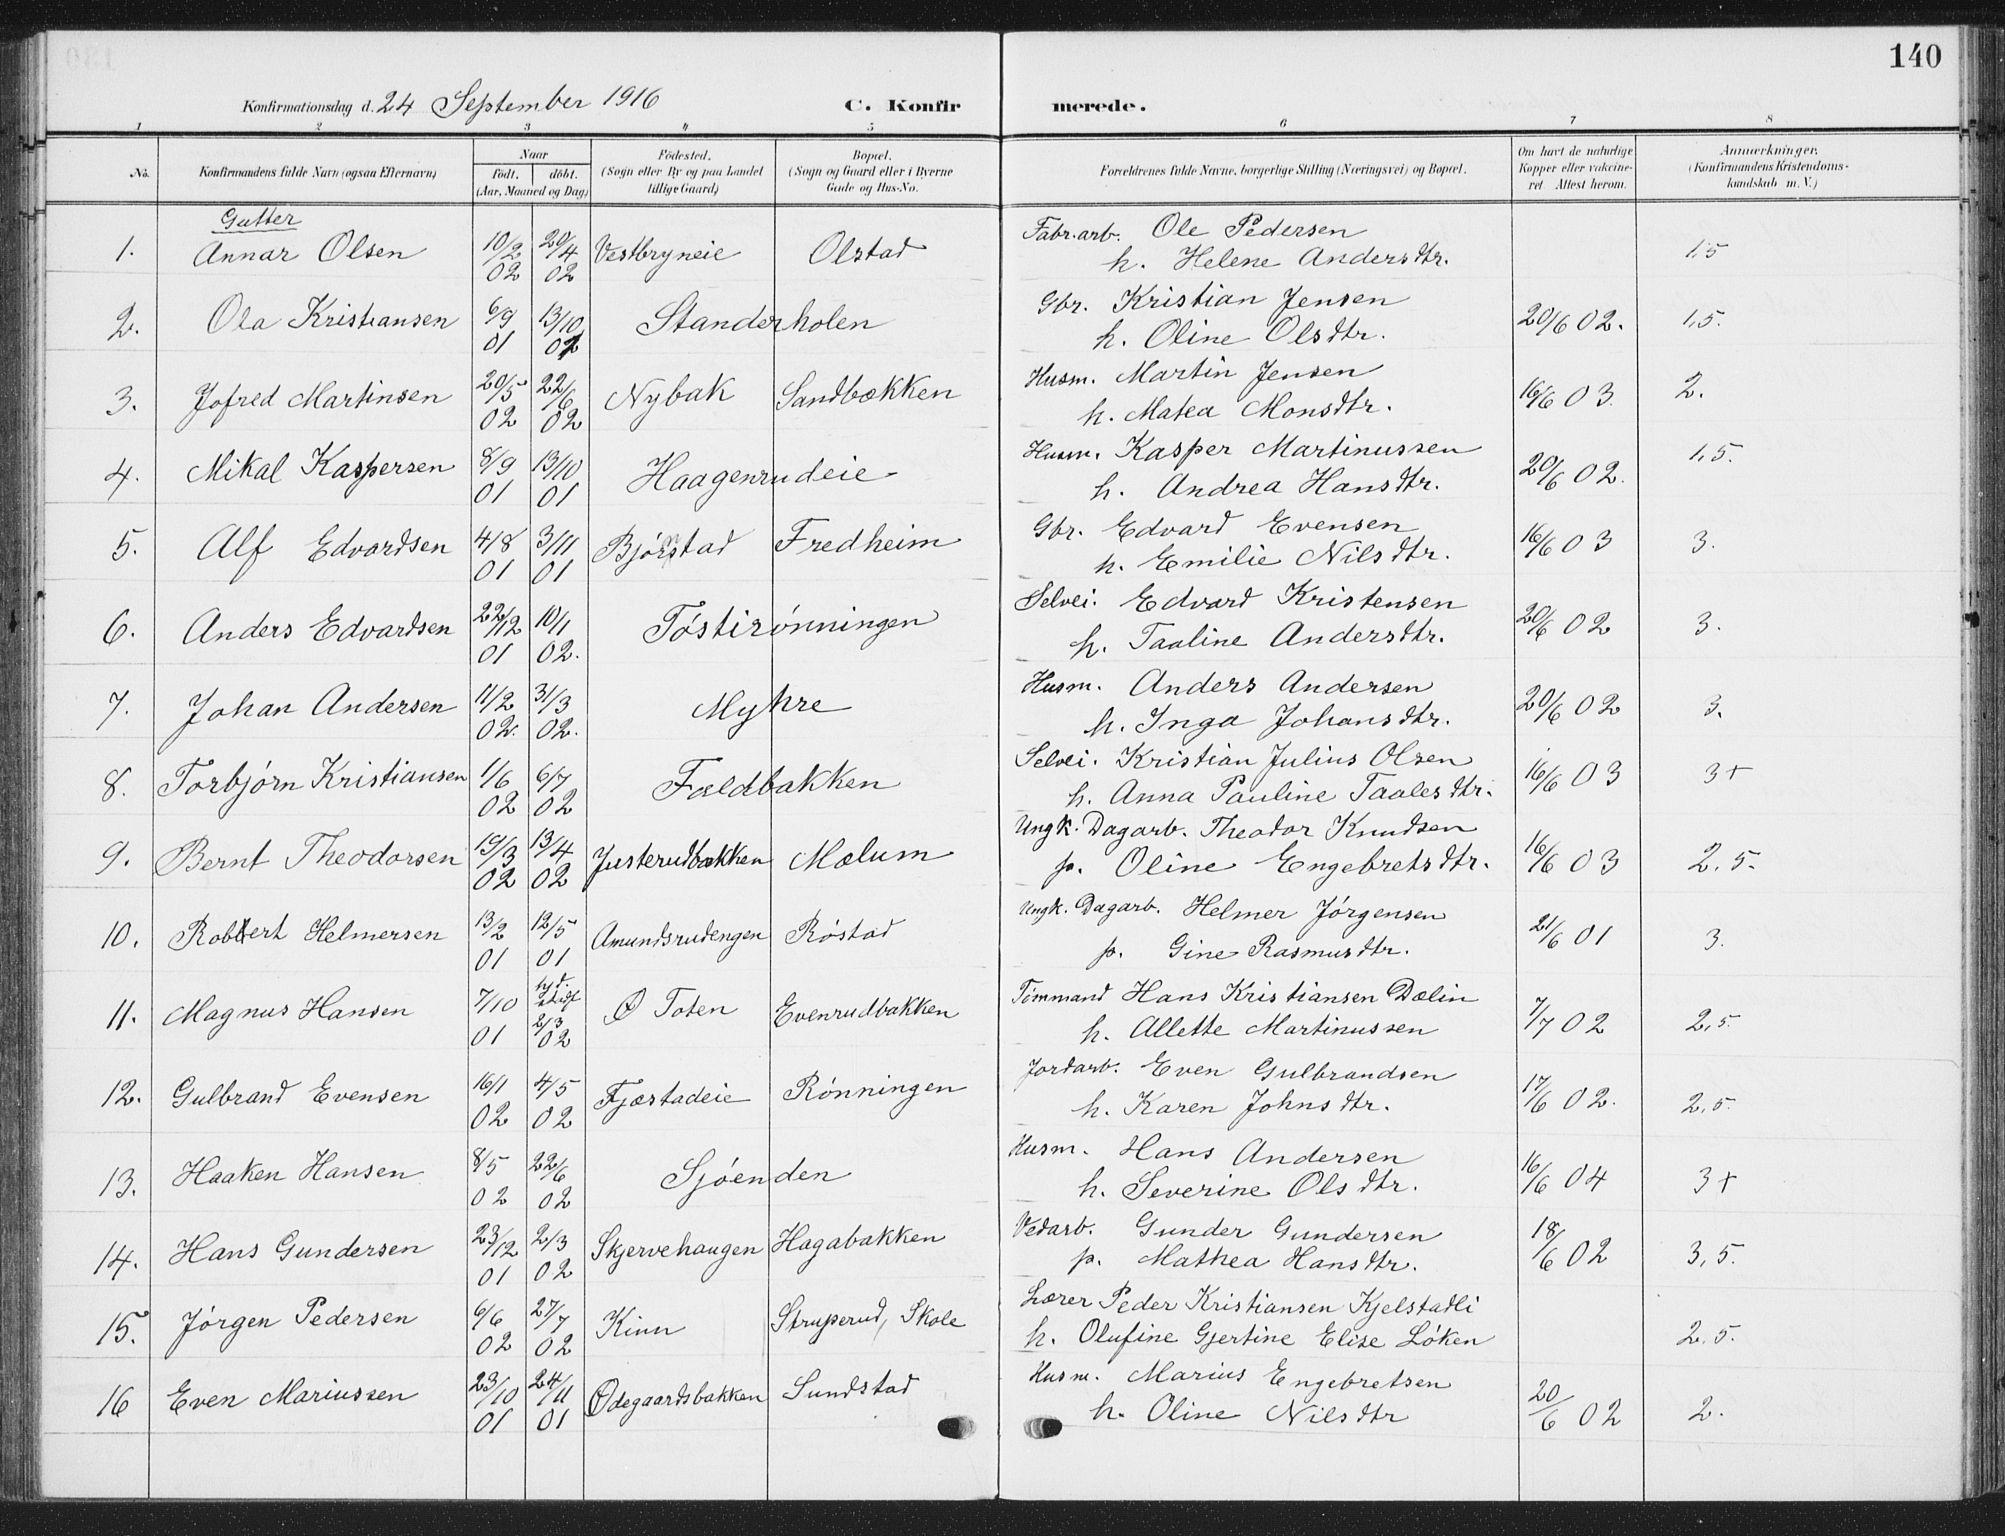 140
Konfirmationsdag d. 24 September 1916 C. Konfirmerede.
1 2 3 4 5 6 7 8
No. Konfirmandens fulde Navn (ogsaa Efternavn) Naar født. døbt. (Aar, Maaned og Dag) Födested. (Sogn eller By og paa Landet tillige Gaard) Bopæl. (Sogn og Gaard eller i Byerne Gade og Hus-No. Forældrenes fulde Navne, borgerlige Stilling (Næringsvei) og Bopæl. Om havt de naturlige Kopper eller vakcineret Attest herom. Anmærkninger. (Konfirmandens Kristendomskundskab m. V.)
Gutter
1. Annar Olsen 10/2 02 20/4 02 Vestbryneie Olstad Fabr.arb. Ole Pedersen 1,5
h. Helene Andersdtr.
2. Ola Kristiansen 6/9 01 13/10 Standerholen Gbr. Kristian Jensen 20/6 02. 1,5.
h. Oline Olsdtr.
3. Jofred Martinsen 20/5 02 22/6 02 Nybak Sandbækken Husm. Martin Jensen 16/6 03. 2.
h. Matea Monsdtr.
4. Mikal Kaspersen 8/9 01 13/10 01 Haagenrudeie Husm. Kasper Martinussen 20/6 02. 1,5.
h. Andrea Hansdtr.
5. Alf Edvardsen 4/8 01 3/11 01 Bjørnstad Fredheim Gbr. Edvard Evensen 16/6 03 3.
h. Emilie Nilsdtr.
6. Anders Edvardsen 22/12 01 10/1 02. Tøstirønningen Selvei. Edvard Kristensen 20/6 02 3.
h. Taaline Andersdtr.
7. Johan Andersen 11/2 02. 31/3 02. Myhre Husm. Anders Andersen 20/6 02 3.
h. Inga Johansdtr.
8. Torbjørn Kristiansen 1/6 02 6/7 02 Fældbakken Selvei. Kristian Julius Olsen 16/6 03 3+
h. Anna Pauline Taalesdtr.
9. Bernt Theodorsen 19/3 02 13/4 02 Justerudbakken Mælum Ungk. Dagarb. Theodor Knudsen 16/6 03 2,5.
p. Oline Engebretsdtr.
10. Robert Helmersen 13/2 01 12/5 01 Amundsrudengen Røstad Ungk. Dagarb. Helmer Jørgensen 21/6 01 3.
p. Gine Rasmusdtr.
11. Magnus Hansen 7/10 01 hjd. 2/3 02 Ø Toten Evenrudbakken Tømmand Hans Kristiansen Dælin 7/7 02 2,5.
h. Allette Martinussen
12. Gulbrand Evensen 16/1 02 4/5 02 Fjæstadeie Rønningen Jordarb. Even Gulbrandsen 17/6 02. 2,5.
h. Karen Johnsdtr.
13. Haaken Hansen 8/5 02 22/6 02 Sjøenden Husm. Hans Andersen 16/6 04 3+
h. Severine Olsdtr.
14. Hans Gundersen 23/12 01 2/3 02 Skjervehaugen Hagabakken Vedarb. Gunder Gundersen 18/6 02 3,5.
p. Mathea Hansdtr.
15. Jørgen Pedersen 6/6 02 27/7 02 Kinn Struperud, Skole Lærer Peder Kristiansen Kjelstadli 2,5.
h. Olufine Gjertine Elise Løken
16 Even Mariussen 23/10 01 24/11 01 Ødegaardsbakken Sundstad Husm. Marius Engebretsen 20/6 02 2.
h. Oline Nilsdtr